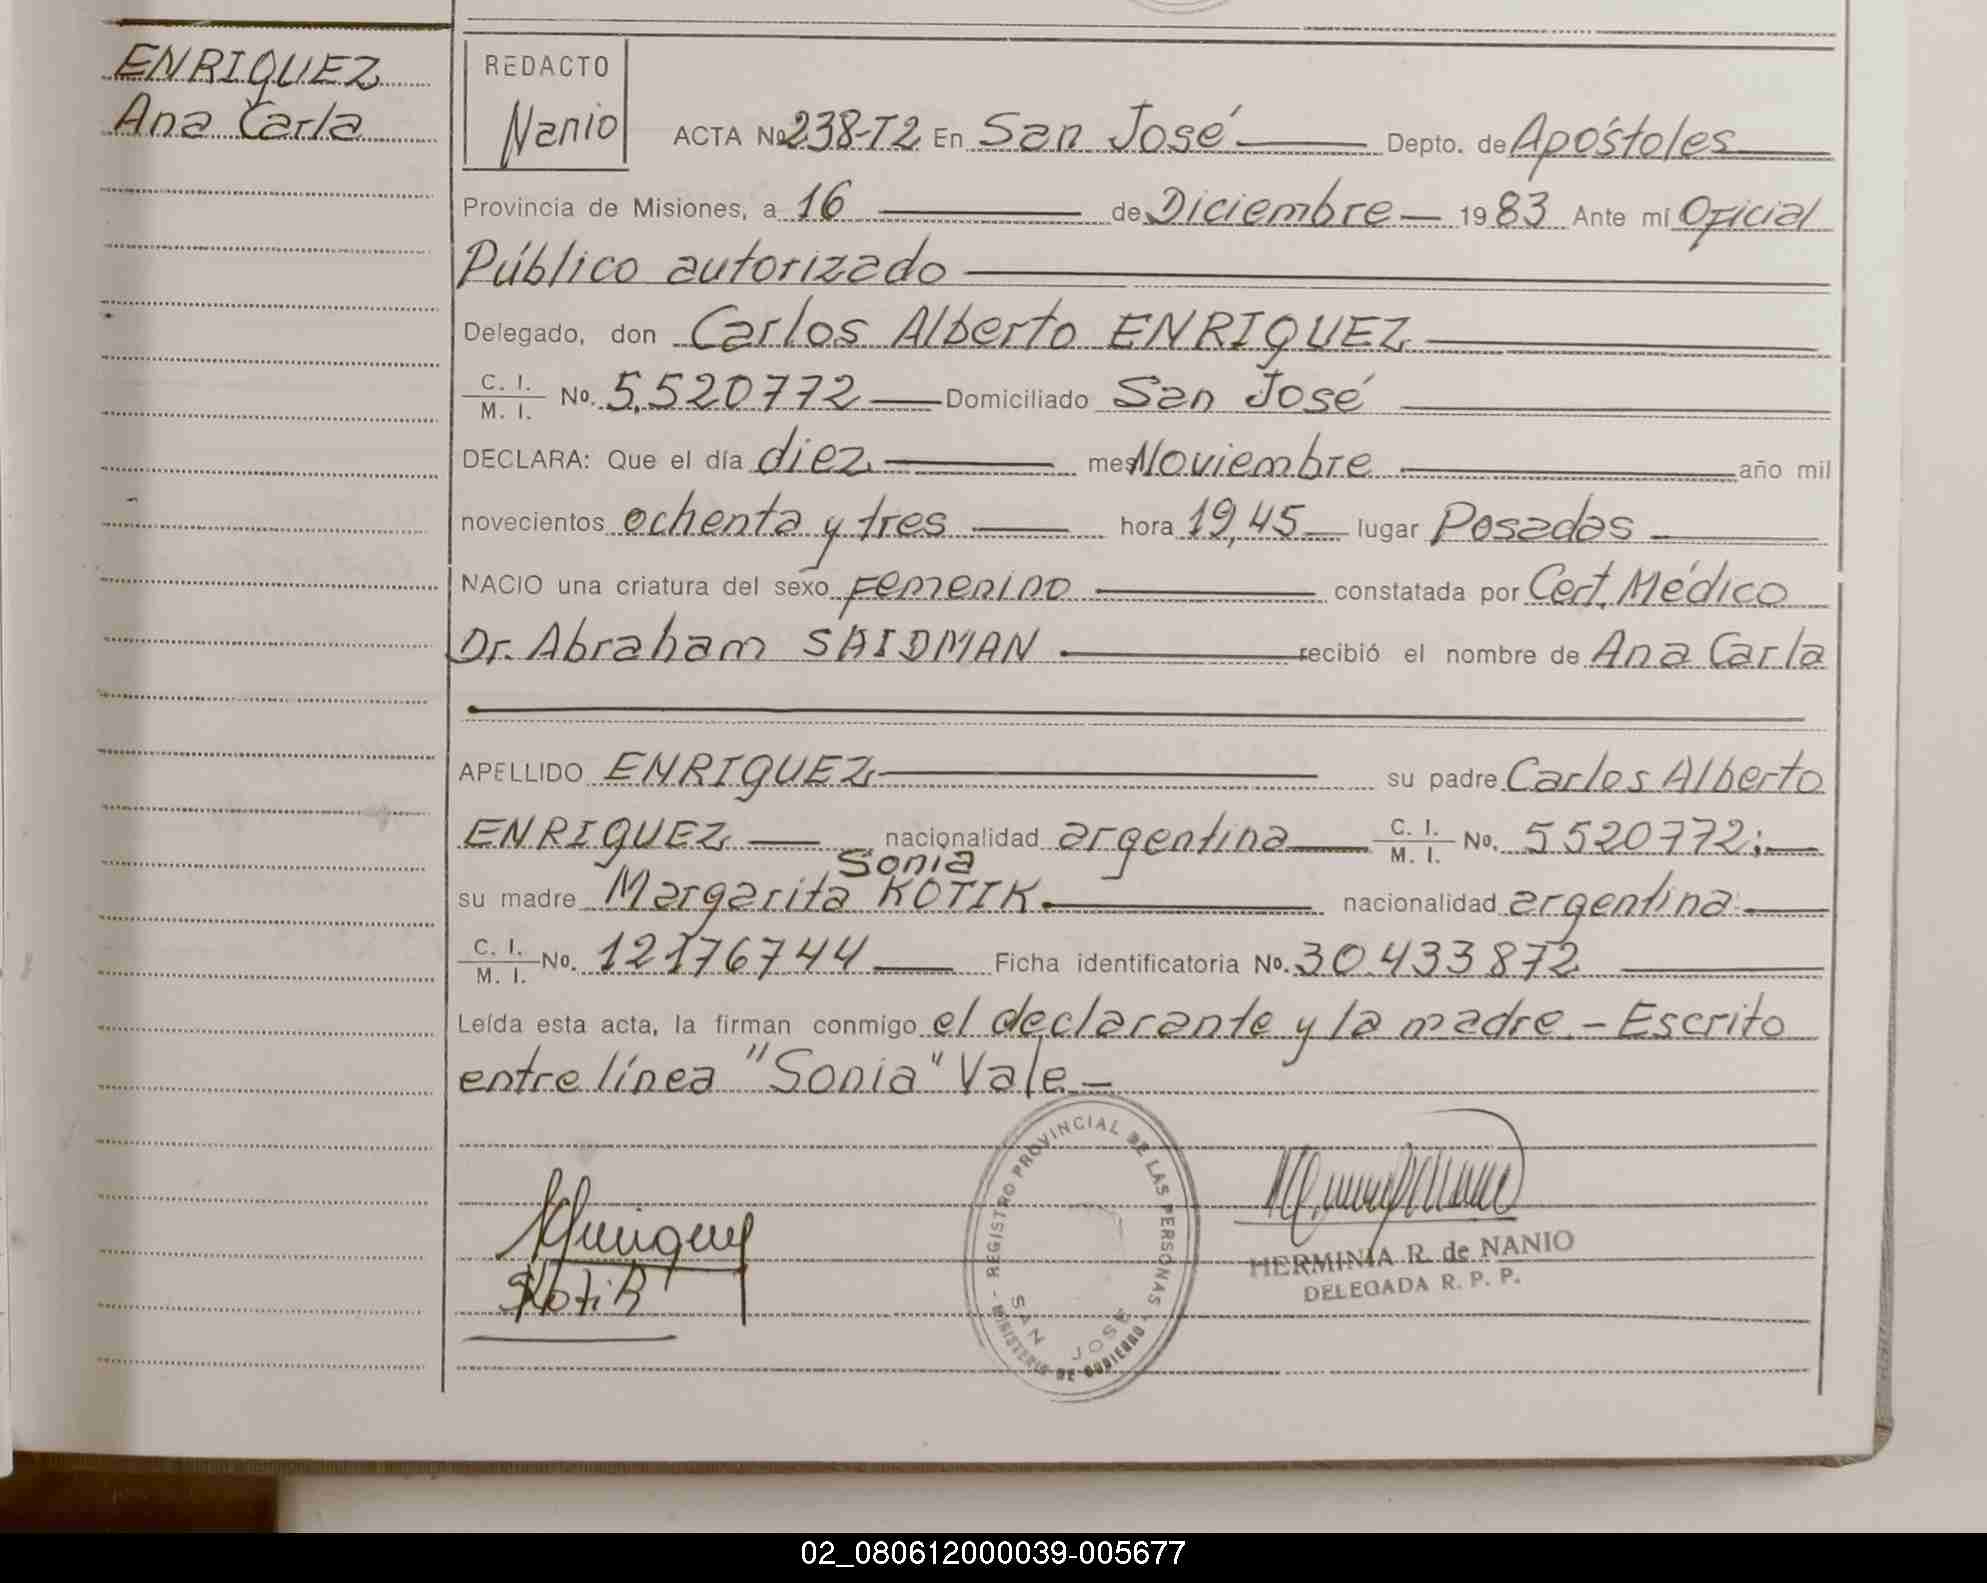 ENRIQUEZ
Ana Carla
REDACTO
Nanio
ACTA No 238-T2 En San José Depto. de Apóstoles
Provincia de Misiones, a 16 de Diciembre 1983 Ante mí Oficial
Público autorizado
Delegado, don Carlos Alberto ENRIQUEZ
C. I. M. I. No. 5.520772 Domiciliado San José
DECLARA: Que el día diez mes Noviembre año mil
novecientos ochenta y tres hora 19,45 lugar Posadas
NACIO una criatura del sexo Femenino constatada por Cert. Médico
Dr. Abraham SAIDMAN recibió el nombre de Ana Carla
APELLIDO ENRIQUEZ su padre Carlos Alberto
ENRIQUEZ nacionalidad argentina C. I. M. I. No. 5520772;
Sonia
su madre Margarita KOTIK. nacionalidad argentina
C. I. M. I. No. 12176744 Ficha identificatoria No. 30.433872
Leída esta acta, la firman conmigo el declarante y la madre.- Escrito
entre línea "Sonia" Vale.-
REGISTRO PROVINCIAL DE LAS PERSONAS
SAN JOSE
MINISTERIO DE GOBIERNO
SKotik
HERMINIA R. de NANIO
DELEGADA R. P. P.
02_080612000039-005677